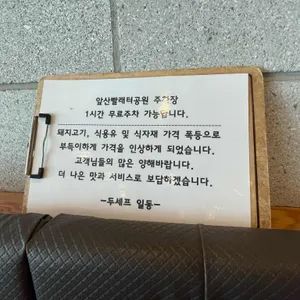 앞산빨래터공원 주차장
1시간 무료주차 가능합니다.
돼지고기, 식용유 및 식자재 가격 폭등으로
부득이하게 가격을 인상하게 되었습니다.
고객님들의 많은 양해바랍니다.
더 나은 맛과 서비스로 보답하겠습니다.
-두셰프 일동-